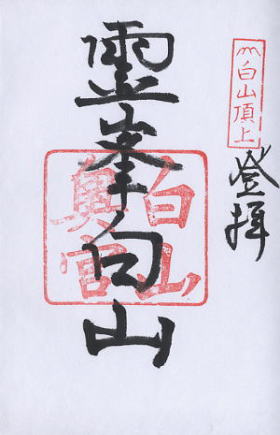 白山頂上
登拝
霊峯白山
白山
奥宮